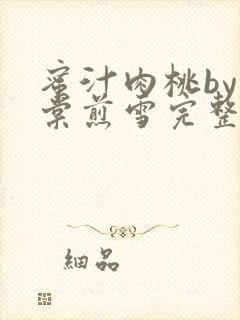 蜜汁肉桃by
棠煎雪完整
细品